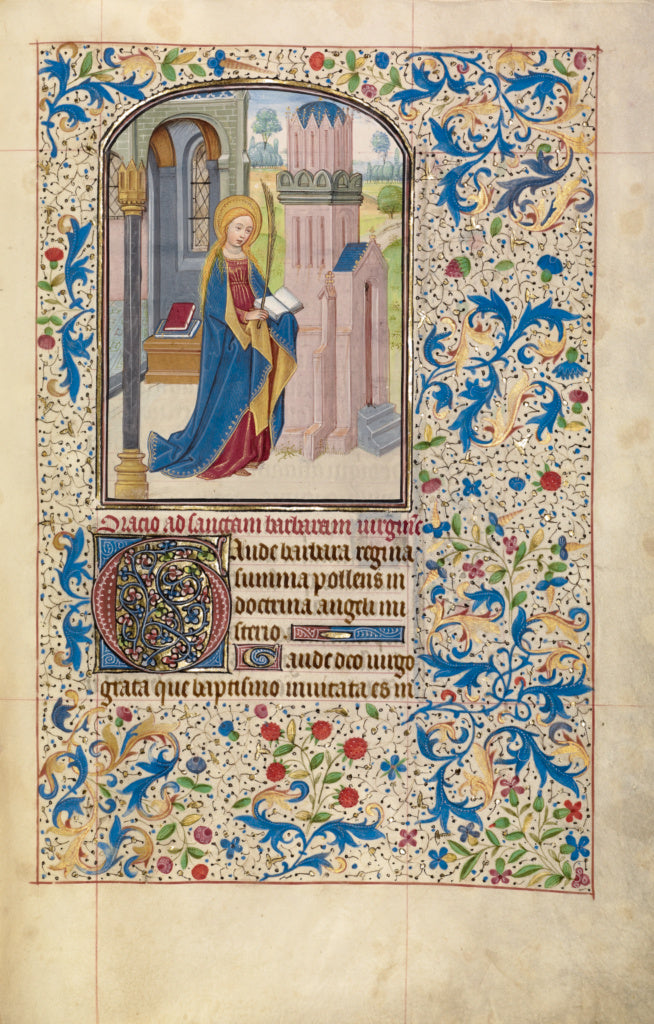 Oracio ad sanctam barbaram uirgine
Gaude barbara regina
summa pollens in
doctrina angeli mi
sterio.
Gaude deo uirgo
grata que baptismo inuitata es in